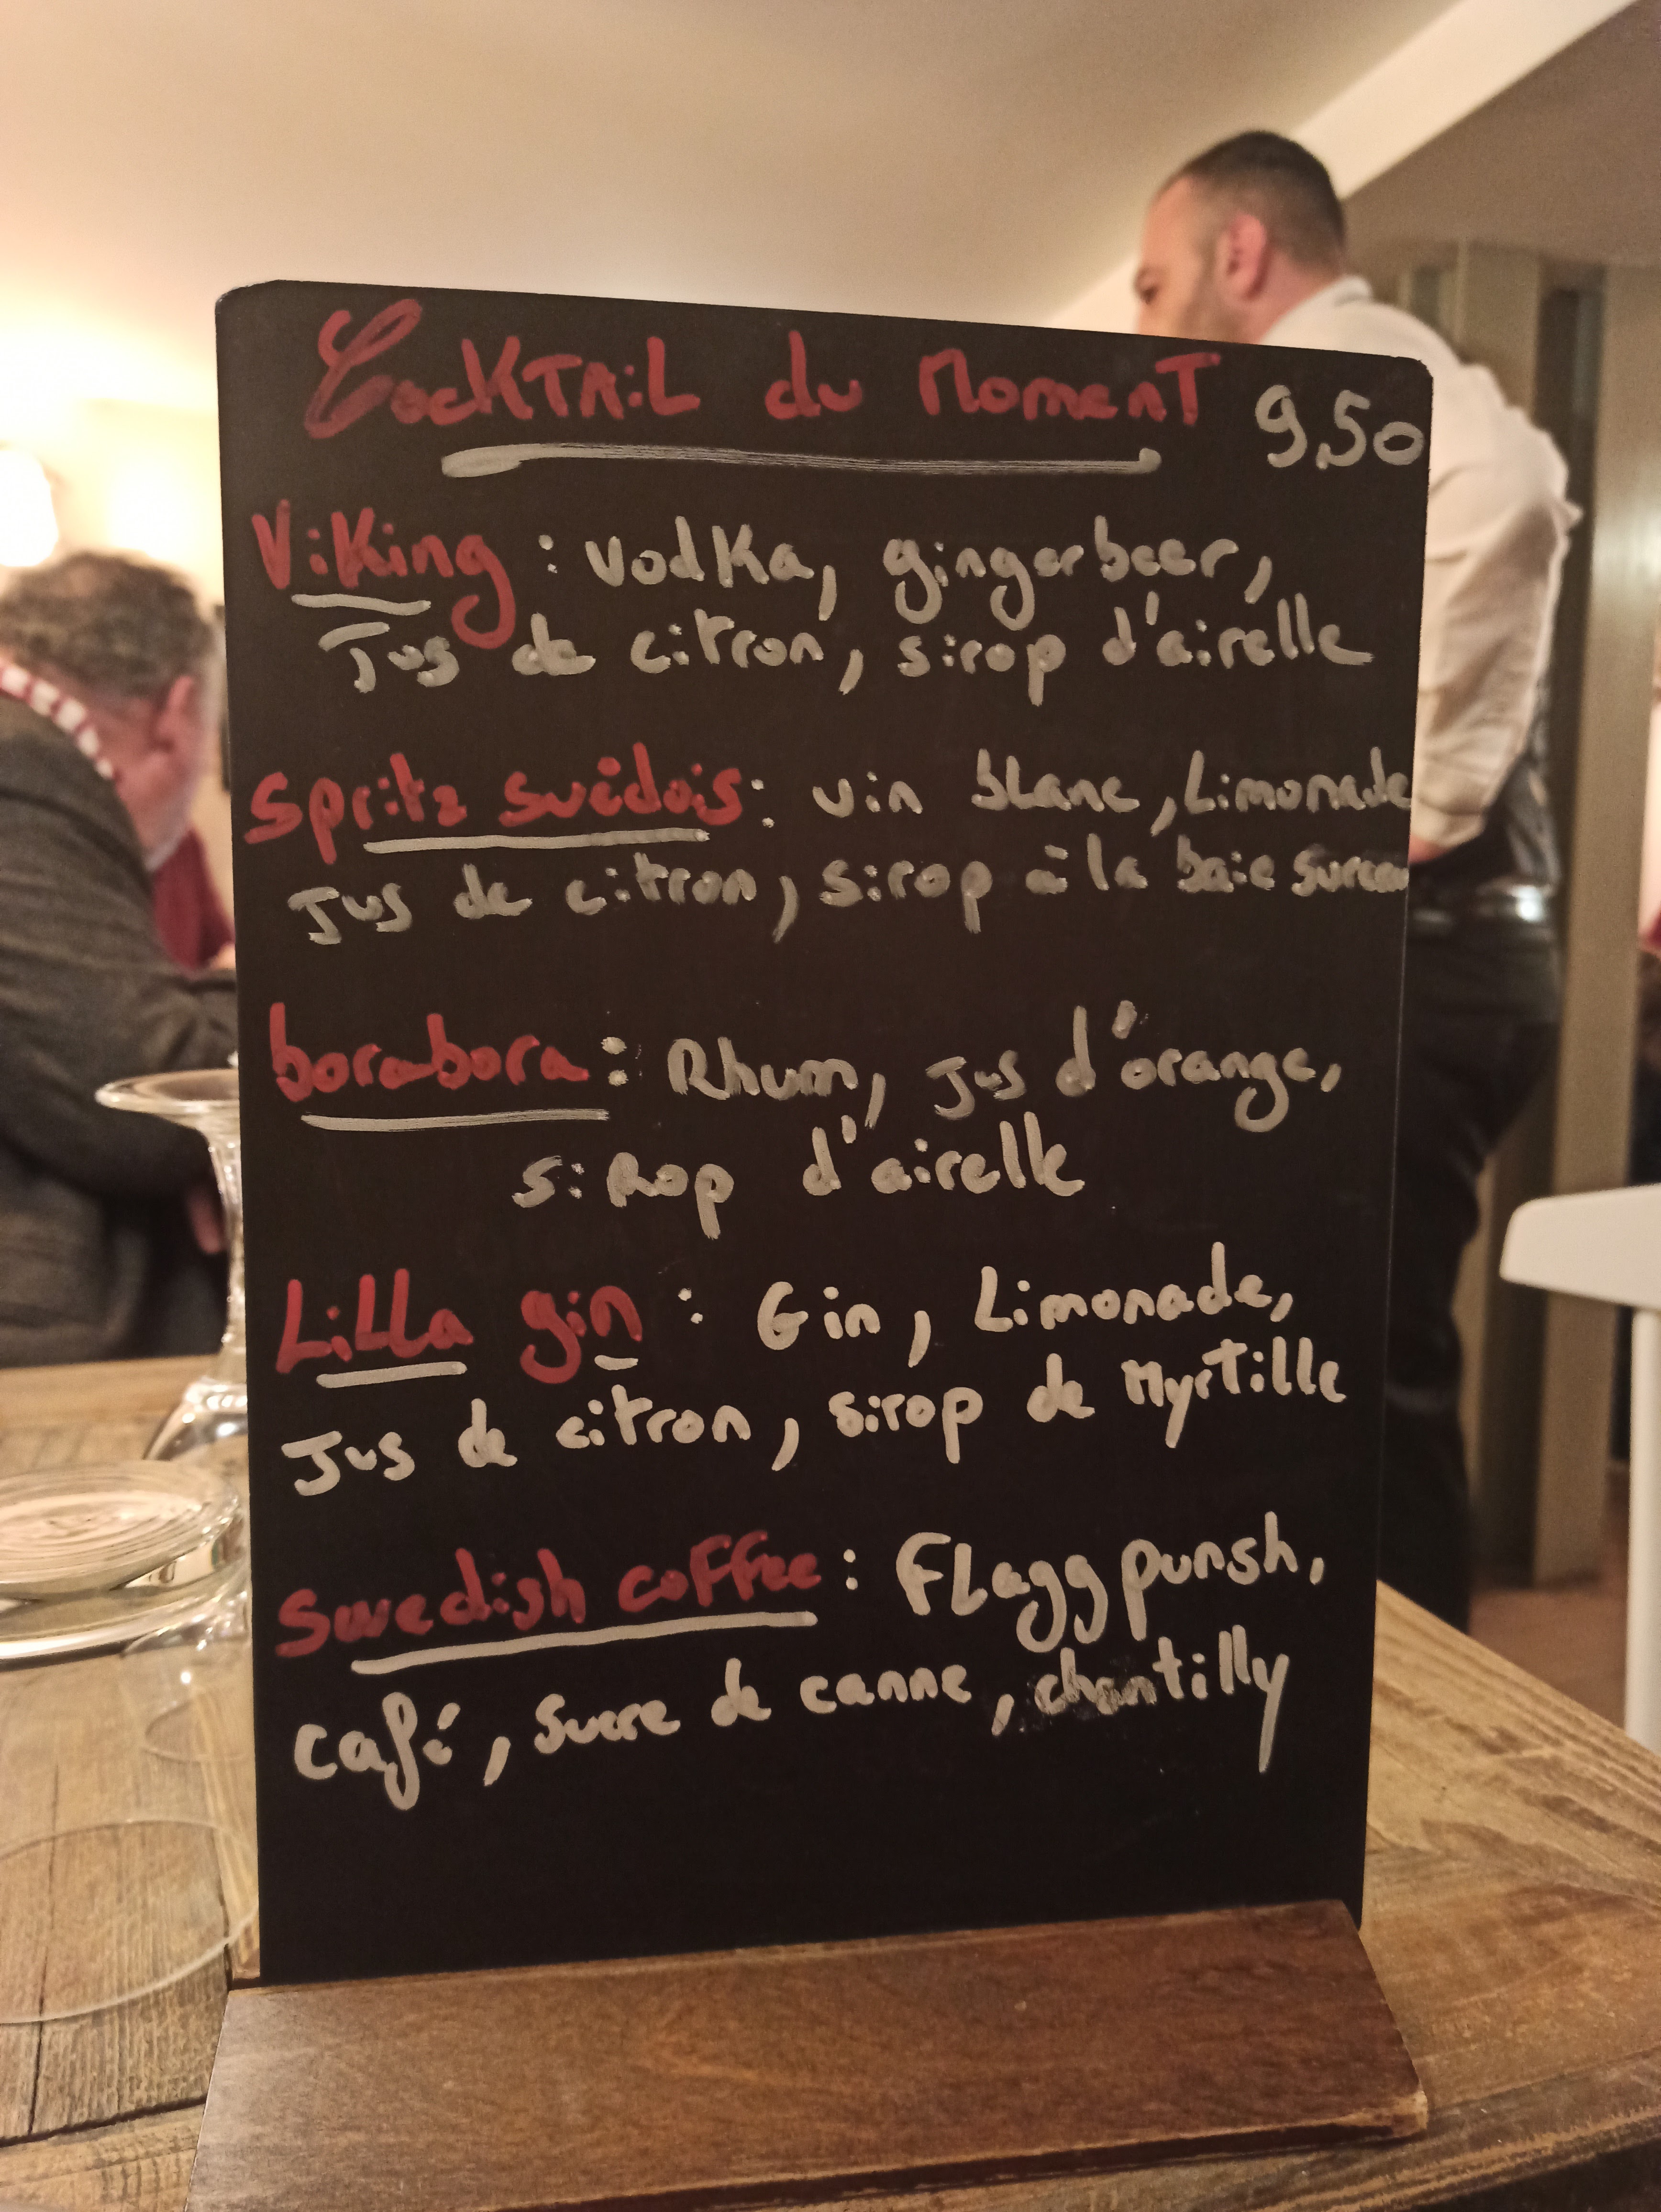 Cocktail du Moment 9,50
Viking : vodka, gingerbeer,
Jus de citron, sirop d'airelle
Spritz suédois : vin blanc, Limonade
Jus de citron, sirop à la baie sureau
borabora : Rhum, Jus d'orange,
siRop d'airelle
Lilla gin : Gin, Limonade,
Jus de citron, sirop de Myrtille
Swedish coffee : Flagg punsh,
café, sucre de canne, chantilly